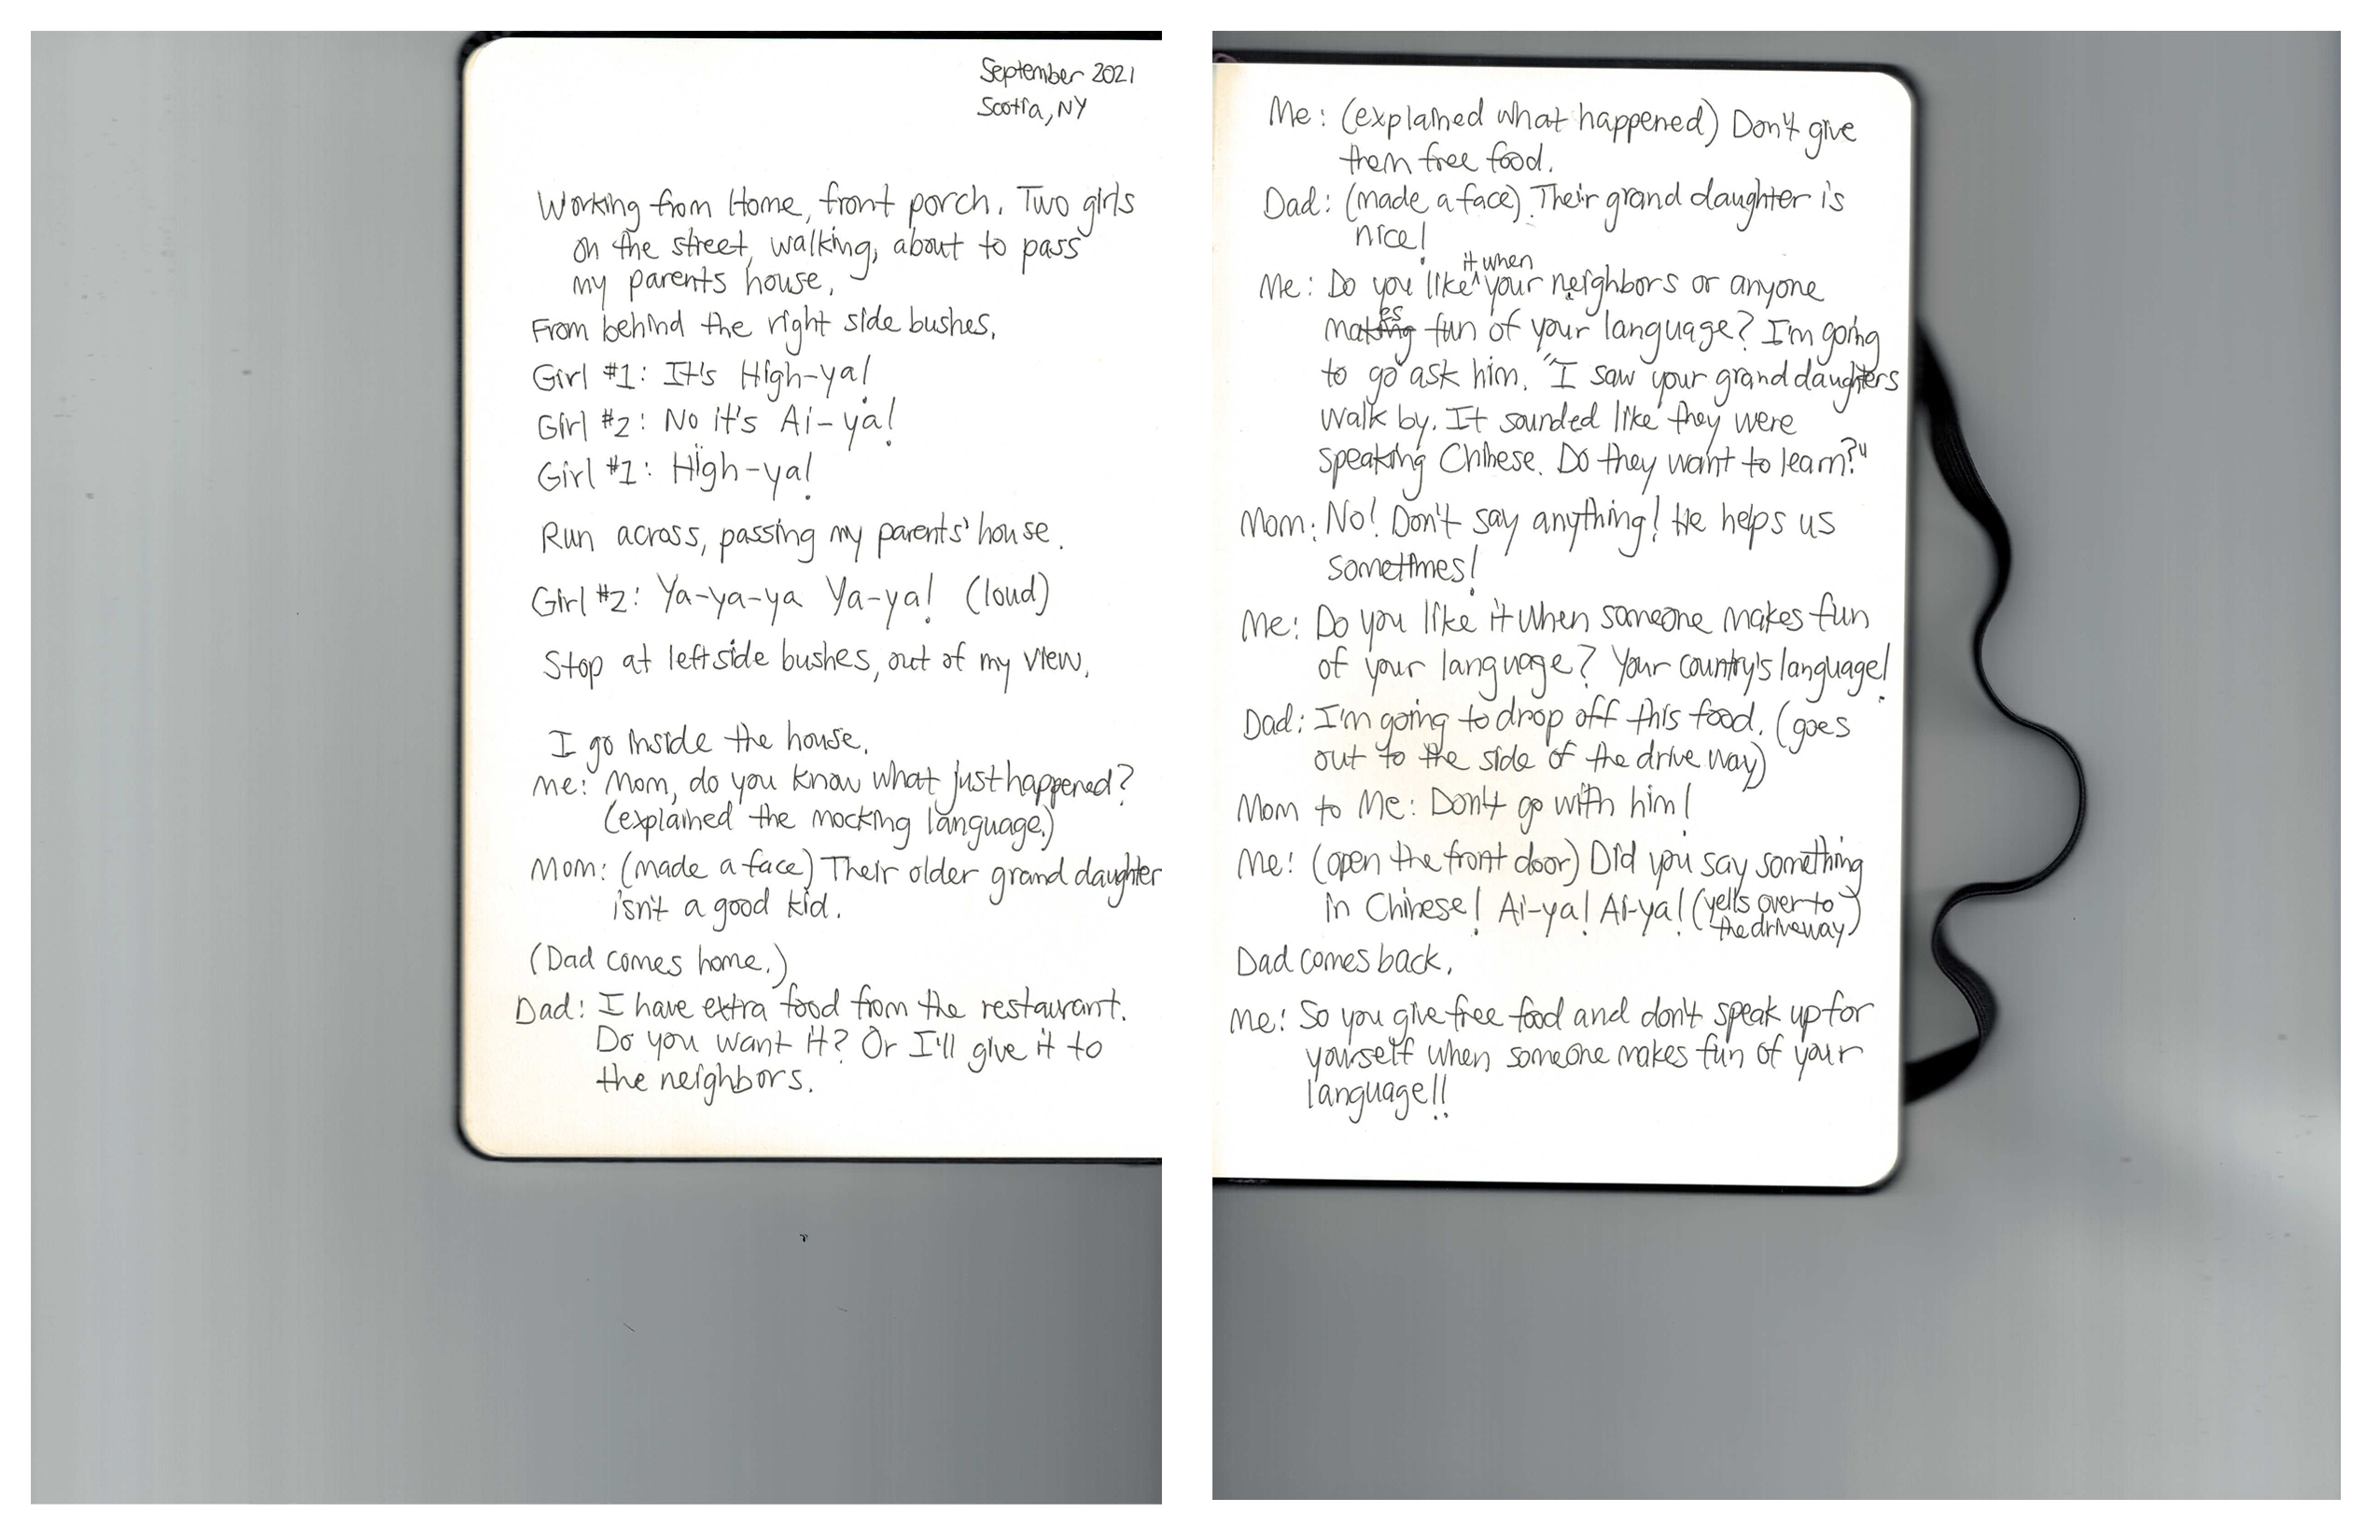 September 2021
Scotia, NY
Working from Home, front porch. Two girls
on the street, walking, about to pass
my parents house.
From behind the right side bushes.
Girl #1: It's High-ya!
Girl #2: No it's Ai-ya!
Girl #1: High-ya!
Run across, passing my parents' house.
Girl #2: Ya-ya-ya Ya-ya! (loud)
Stop at left side bushes, out of my view.
I go inside the house.
Me: Mom, do you know what just happened?
(explained the mocking language.)
Mom: (made a face) Their older grand daughter
isn't a good kid.
(Dad comes home.)
Dad: I have extra food from the restaurant.
Do you want it? Or I'll give it to
the neighbors.
Me: (explained what happened) Don't give
them free food.
Dad: (made a face). Their grand daughter is
nice!
Me: Do you like it when your neighbors or anyone
makes fun of your language? I'm going
to go ask him. "I saw your grand daughters
walk by. It sounded like they were
speaking Chinese. Do they want to learn?"
Mom: No! Don't say anything! He helps us
sometimes!
Me: Do you like it when someone makes fun
of your language? Your country's language!
Dad: I'm going to drop off this food. (goes
out to the side of the drive way)
Mom to Me: Don't go with him!
Me: (open the front door) Did you say something
in Chinese! Ai-ya! Ai-ya! (yells over to
the driveway)
Dad comes back.
Me: So you give free food and don't speak up for
yourself when someone makes fun of your
language!!